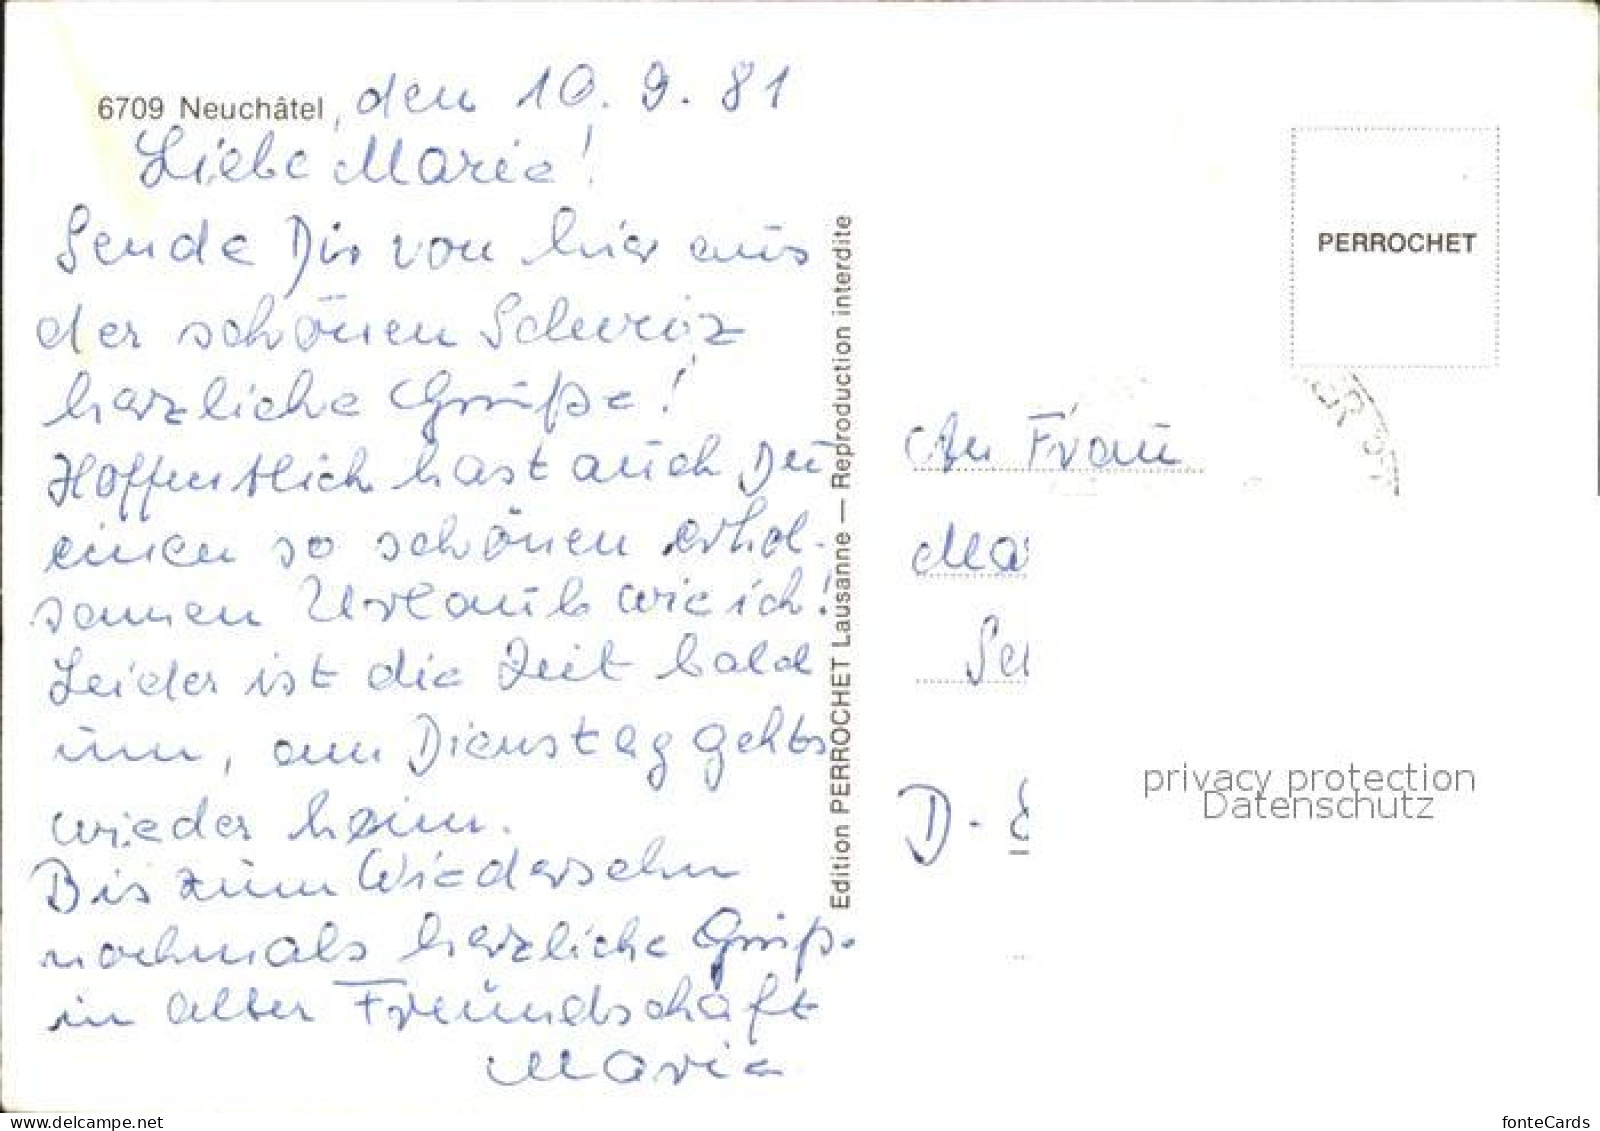 6709 Neuchâtel, den 10. 9. 81
Liebe Marie!
Sende Dir von hier aus
der schönen Schweiz
herzliche Grüße!
Hoffentlich hast auch Du
einen so schönen erhol-
samen Urlaub wie ich!
Leider ist die Zeit bald
um, am Dienstag gehts
wieder heim.
Bis zum Wiedersehn
nochmals herzliche Grüße
in alter Freundschaft
Maria
Edition PERROCHET Lausanne — Reproduction interdite
PERROCHET
An Frau
Ma
Sch
D-
privacy protection
Datenschutz
www.delcampe.net
fonteCards